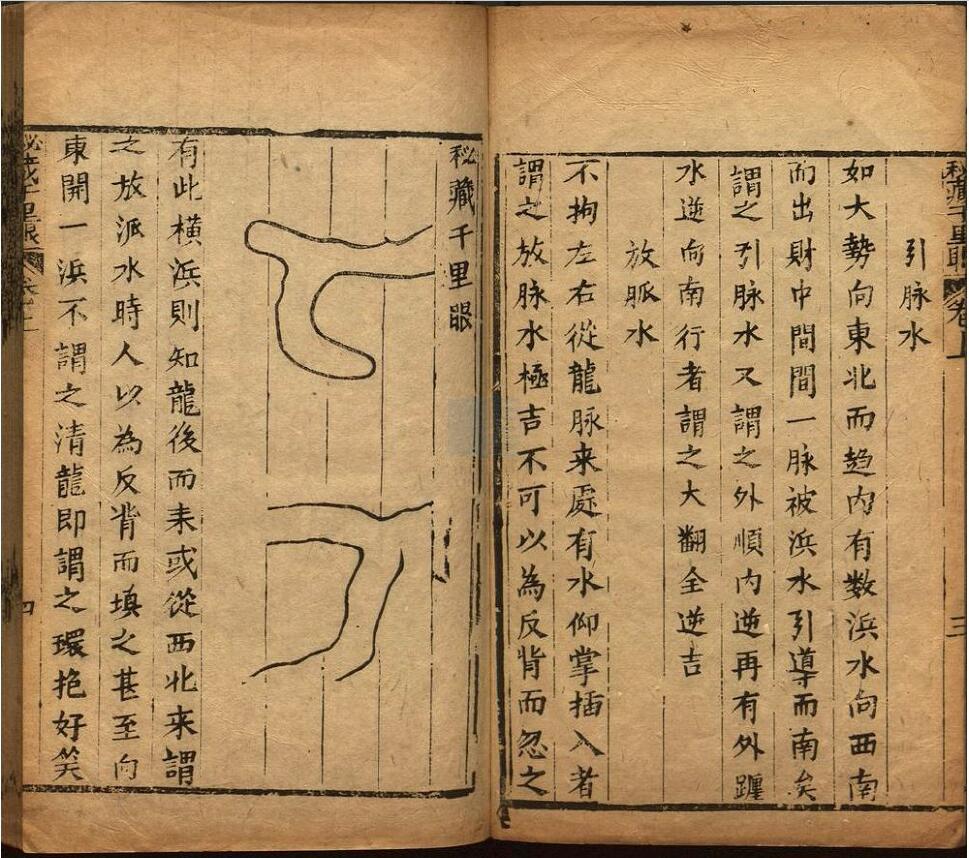 秘藏千里眼 卷上 三
引脉水
如大勢向東北而趋内有数浜水向西南
而出財中間間一脉被浜水引導而南矣
謂之引脉水又謂之外順内逆再有外躔
水逆向南行者謂之大翻全逆吉
放脈水
不拘左右從龍脉来處有水仰掌插入者
謂之放脉水極吉不可以為反背而忽之
秘藏千里眼
有此横浜則知龍後而来或從西北来謂
之放派水時人以為反背而填之甚至向
東開一浜不謂之清龍即謂之環抱好笑
秘藏千里眼 四